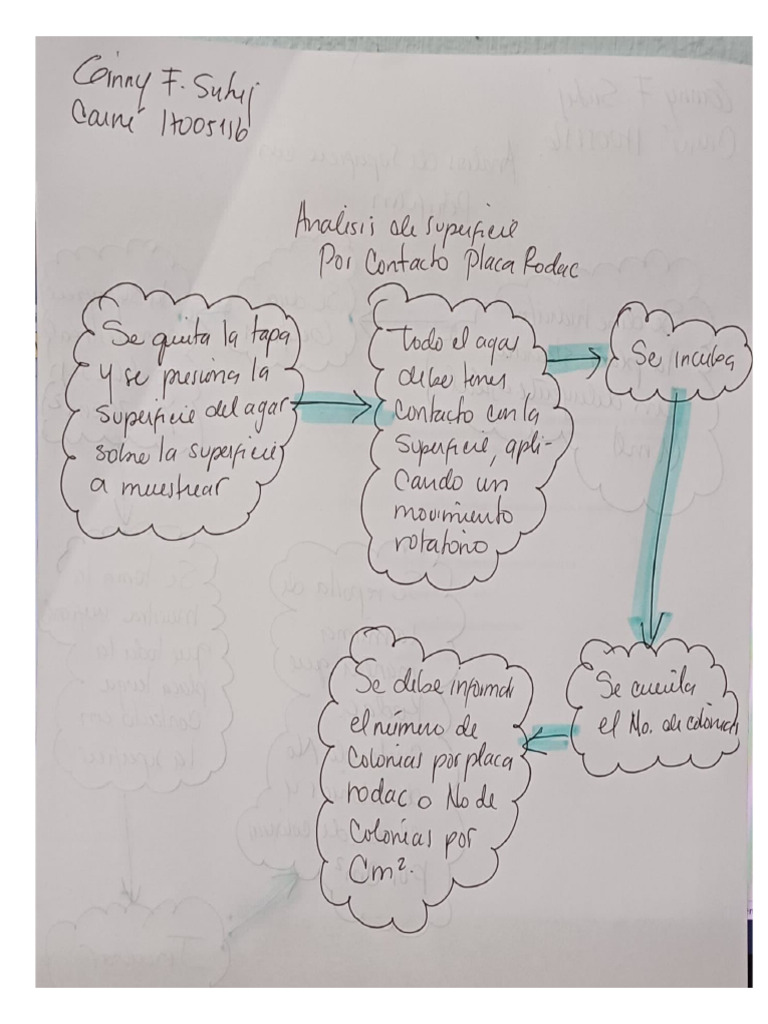 Carné 17005116
Analisis de Superficie
Por Contacto Placa Rodac
Se quita la tapa
y se presiona la
superficie del agar
sobre la superficie
a muestrear
Todo el agar
debe tener
Contacto con la
Superficie, apli-
cando un
movimiento
rotatorio
Se incuba
Se cuenta
el No. de colonias
Se debe informar
el número de
Colonias por placa
rodac o No de
Colonias por
Cm².